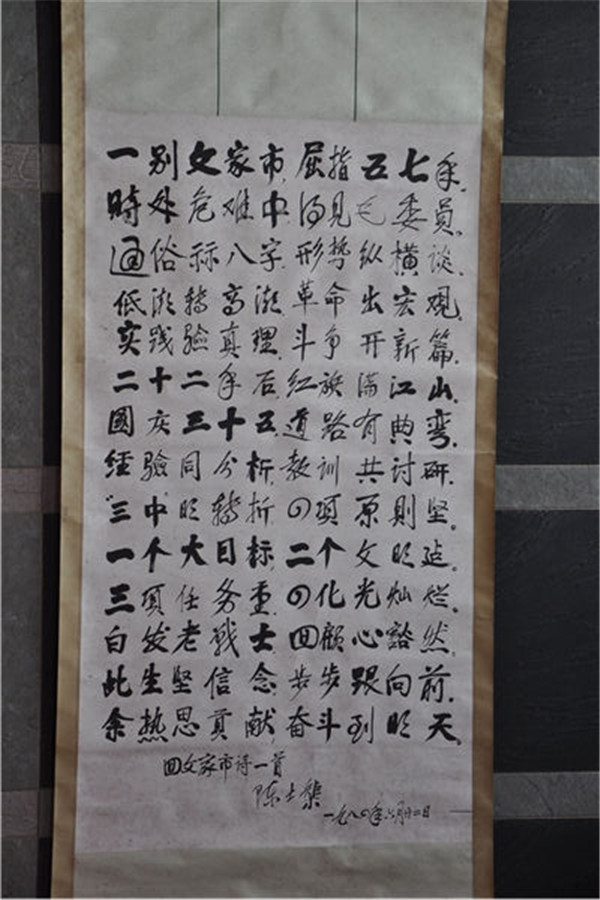 一别文家市,屈指五七年。
時处危难中,得见毛委员。
通俗标八字,形势纵横谈。
低潮转高潮,革命出宏观。
实践验真理,斗争开新篇。
二十二年后,红旗满江山。
國庆三十五,道路有曲弯。
经验同分析,教训共討研。
"三中"明转折,四项原则坚。
一个大目标,二个文明建。
三项任务重,四化光灿烂。
白发老战士,回顾心豁然。
此生坚信念,步步跟向前。
余热思贡献,奋斗到明天。
回文家市得一首
陈士榘
一九八四年六月十二日